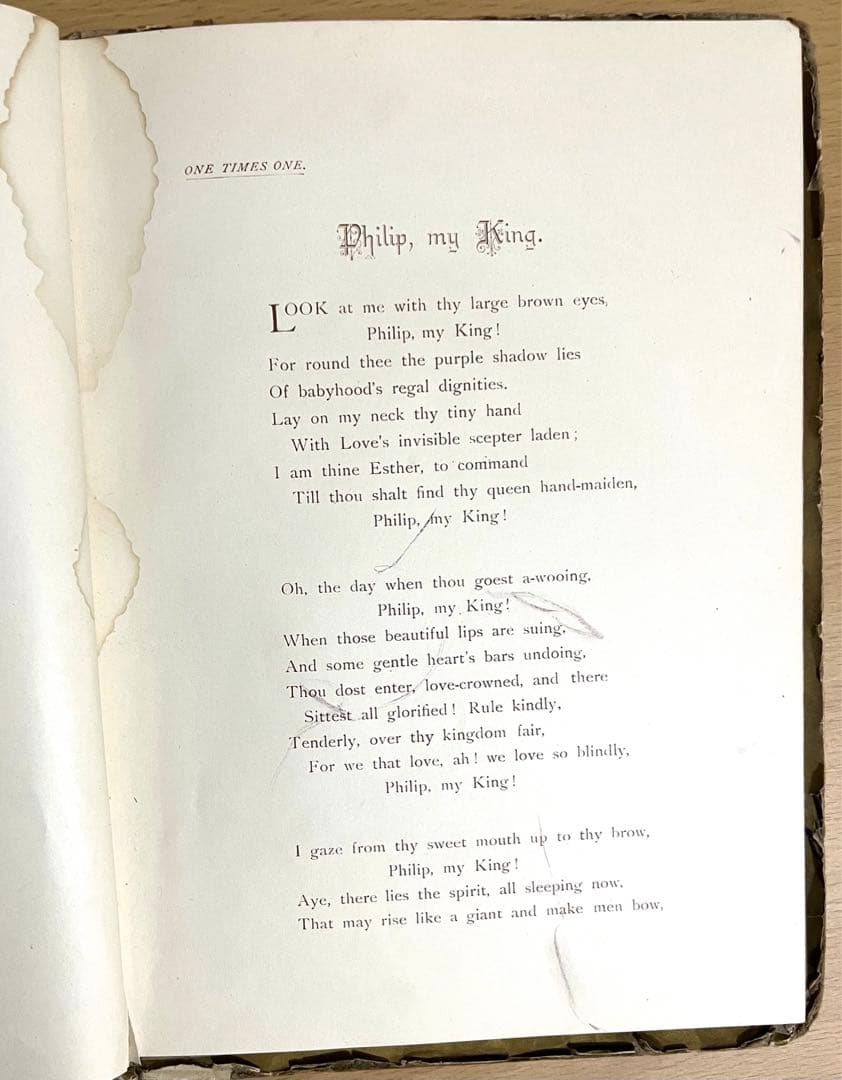 ONE TIMES ONE.
Philip, my King.
LOOK at me with thy large brown eyes,
Philip, my King!
For round thee the purple shadow lies
Of babyhood's regal dignities.
Lay on my neck thy tiny hand
With Love's invisible scepter laden;
I am thine Esther, to command
Till thou shalt find thy queen hand-maiden,
Philip, my King!
Oh, the day when thou goest a-wooing,
Philip, my King!
When those beautiful lips are suing,
And some gentle heart's bars undoing,
Thou dost enter, love-crowned, and there
Sittest all glorified! Rule kindly,
Tenderly, over thy kingdom fair,
For we that love, ah! we love so blindly,
Philip, my King!
I gaze from thy sweet mouth up to thy brow,
Philip, my King!
Aye, there lies the spirit, all sleeping now,
That may rise like a giant and make men bow,